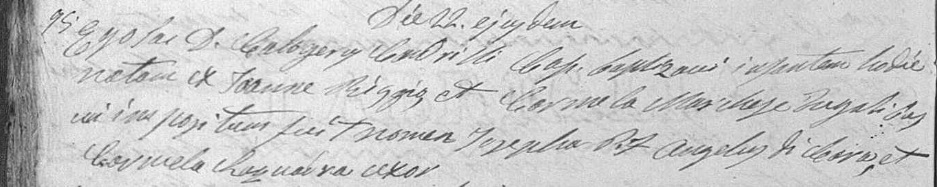 Die 22. ejusdem
95 Ego Sac. D. Calogerus Cap. baptizavi infantem hodie
natam ex Joanne Riggio et Carmela Marchese jugalibus
cui impositum fuit nomen Josepha PP. Angelus di Cara, et
Carmela uxor